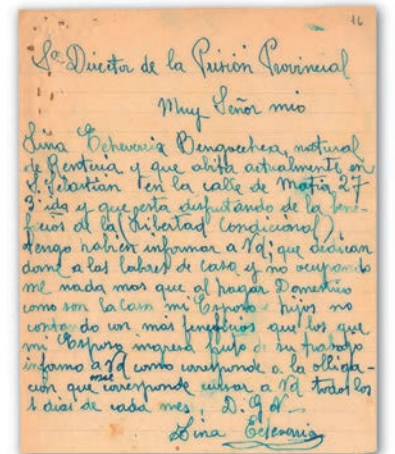 16
Sr Director de la Prisión Provincial
Muy Señor mio
Lina Echeverria Bengoechea, natural
de Renteria y que abita actualmente en
S. Sebastian en la calle de Matia 27
3º izda y que esta disfrutando de la bene-
ficios de la (Libertad Condicional)
tengo habien informar a Vd; que dedican
dome a las labores de casa y no ocupando
me nada mas que al hogar Domestico
como son la casa mi Esposo e hijos no
contando con más beneficios que los que
mi Esposo ingresa fruto de su trabajo
informo a Vd como corresponde a la obliga-
cion que me corresponde cursar a Vd todos los
1 dias de cada mes, D. G. V.
Lina Echeverria